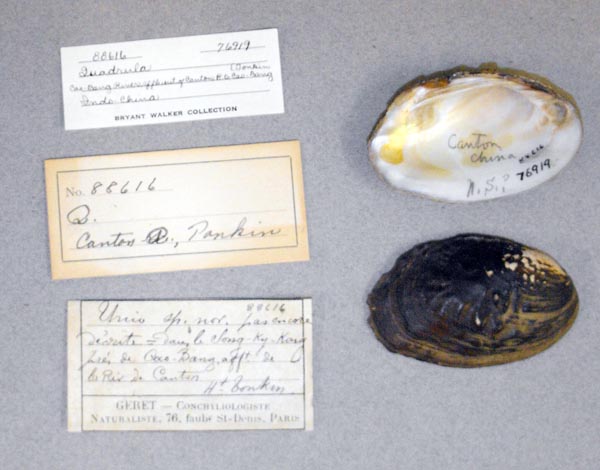 88616 76919
Quadrula (Tonkin
Cao-Bang River, affluent of Canton R. to Cao-Bang
Indo-China
BRYANT WALKER COLLECTION
No. 88616
Q.
Canton R., Tonkin
88616
Unio sp. nov. pas encore
décrite = dans le Song-Ky-Kong
près de Cao-Bang, afft. de
la Riv. de Canton
Ht Tonkin
GERET — CONCHYLIOLOGISTE
NATURALISTE, 76, faubg St-Denis, PARIS
Canton
China
N. S.?
88616
76919